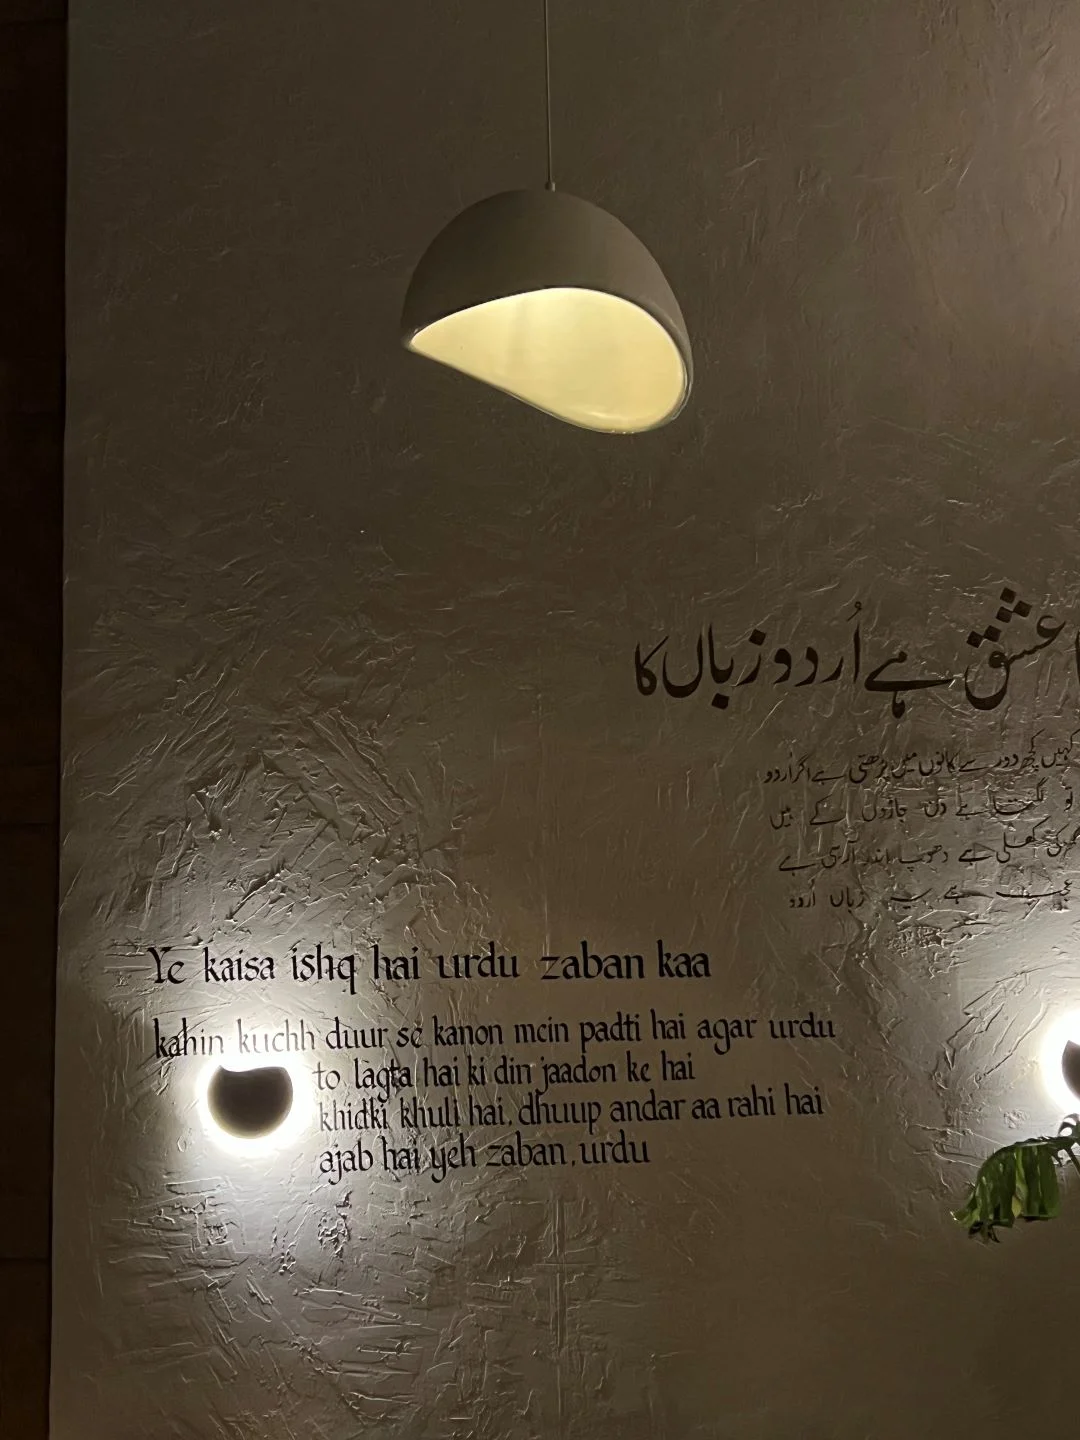 عشق ہے اُردو زباں کا
کہیں کچھ دور سے کانوں میں پڑھتی ہے اگر اُردو
تو لگتا ہے دن جاڑوں کے ہیں
کھلی ہے دھوپ اندر آرہی ہے
ہے یہ زباں اُردو
Ye kaisa ishq hai urdu zaban kaa
kahin kuchh duur se kanon mein padti hai agar urdu
to lagta hai ki din jaadon ke hai
khidki khuli hai, dhuup andar aa rahi hai
ajab hai yeh zaban, urdu